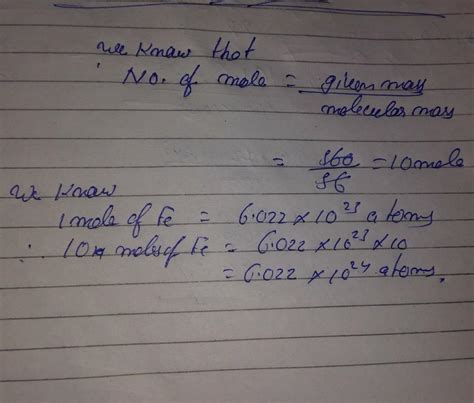 we know that
No. of mole = given mass
molecular mass
= 560/56 = 10 mole
we know
1 mole of Fe = 6.022 × 10²³ atoms
∴ 10 moles of Fe = 6.022 × 10²³ × 10
= 6.022 × 10²⁴ atoms.